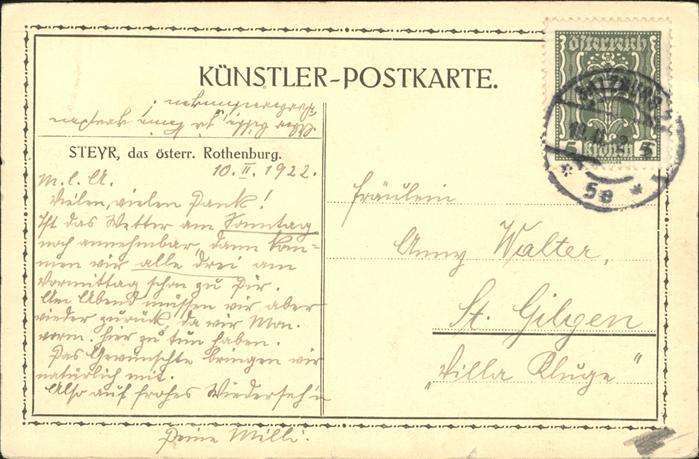 österreich
5 Kronen 5
SALZBURG
5e
KÜNSTLER-POSTKARTE.
STEYR, das österr. Rothenburg.
10. II. 1922.
M. l. A.
Vielen, vielen Dank!
Ist das Wetter am Sonntag
noch annehmbar, dann kom-
men wir alle drei am
Vormittag schon zu Dir.
Am Abend müssen wir aber
wieder zurück, da wir Mon.
vorm. hier zu tun haben.
Das Gewünschte bringen wir
natürlich mit.
Also auf frohes Wiederseh'n
Deine Milli.
Fräulein
Anny Walter,
St. Gilgen
"Villa Kluge"